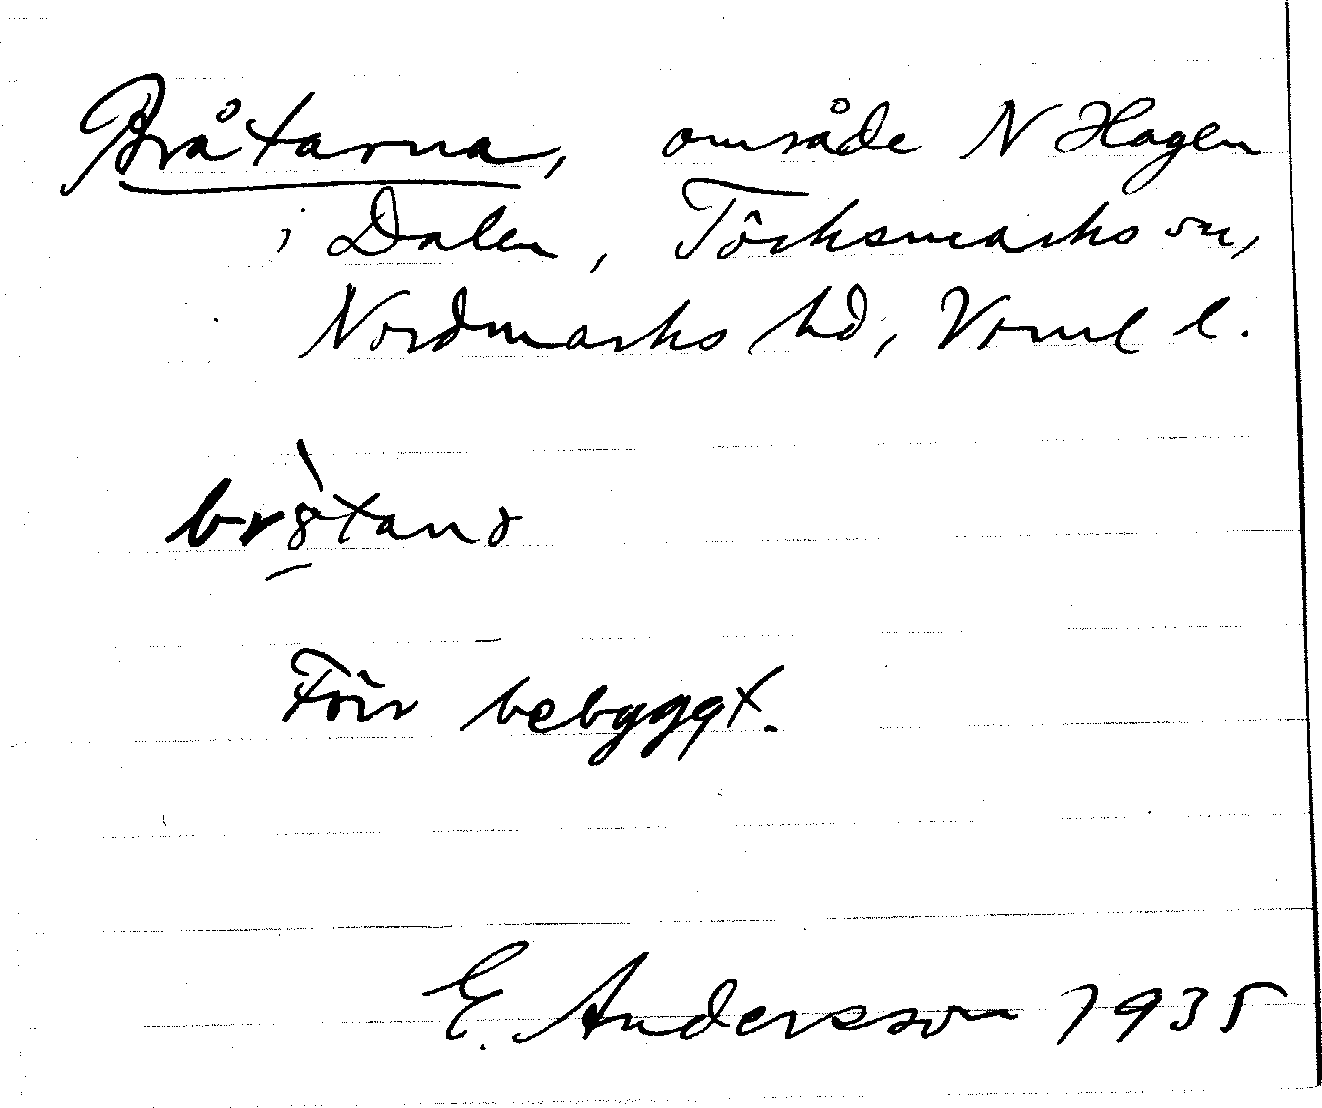 Bråtarna, område N Hagen
i Dalen, Töcksmarks sn,
Nordmarks hd, Vrml l.
Förr bebyggt.
E. Andersson 1935